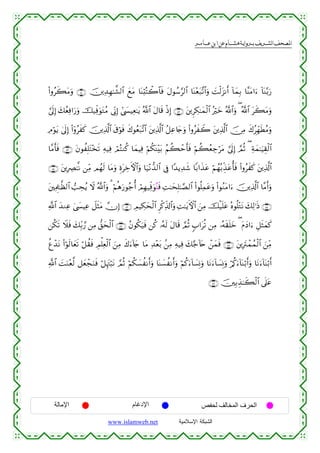 المصحف الشريف برواية هشام عن ابن عامر
رَبَّنَآ ءَامَنَّا بِمَآ أَنزَلْتَ وَٱتَّبَعْنَا ٱلرَّسُولَ فَٱكْتُبْنَا مَعَ ٱلشَّٰهِدِينَ وَمَكَرُوا۟
وَمَكَرَ ٱللَّهُ وَٱللَّهُ خَيْرُ ٱلْمَٰكِرِينَ إِذْ قَالَ ٱللَّهُ يَٰعِيسَىٰٓ إِنِّى مُتَوَفِّيكَ وَرَافِعُكَ إِلَىَّ
وَمُطَهِّرُكَ مِنَ ٱلَّذِينَ كَفَرُوا۟ وَجَاعِلُ ٱلَّذِينَ ٱتَّبَعُوكَ فَوْقَ ٱلَّذِينَ كَفَرُوٓا۟ إِلَىٰ يَوْمِ
ٱلْقِيَٰمَةِ ثُمَّ إِلَىَّ مَرْجِعُكُمْ فَأَحْكُمُ بَيْنَكُمْ فِيمَا كُنتُمْ فِيهِ تَخْتَلِفُونَ فَأَمَّا
ٱلَّذِينَ كَفَرُوا۟ فَأُعَذِّبُهُمْ عَذَابًا شَدِيدًا فِى ٱلدُّنْيَا وَٱلْءَاخِرَةِ وَمَا لَهُم مِّن نَّٰصِرِينَ
وَأَمَّا ٱلَّذِينَ ءَامَنُوا۟ وَعَمِلُوا۟ ٱلصَّٰلِحَٰتِ فَنُوَفِّيهِمْ أُجُورَهُمْ وَٱللَّهُ لَا يُحِبُّ ٱلظَّٰلِمِينَ
ذَٰلِكَ نَتْلُوهُ عَلَيْكَ مِنَ ٱلْءَايَٰتِ وَٱلذِّكْرِ ٱلْحَكِيمِ إِنَّ مَثَلَ عِيسَىٰ عِندَ ٱللَّهِ
كَمَثَلِ ءَادَمَ خَلَقَهُۥ مِن تُرَابٍ ثُمَّ قَالَ لَهُۥ كُن فَيَكُونُ ٱلْحَقُّ مِن رَّبِّكَ فَلَا تَكُن
مِّنَ ٱلْمُمْتَرِينَ فَمَنْ حَآجَّكَ فِيهِ مِنۢ بَعْدِ مَا جَآءَكَ مِنَ ٱلْعِلْمِ فَقُلْ تَعَالَوْا۟ نَدْعُ
أَبْنَآءَنَا وَأَبْنَآءَكُمْ وَنِسَآءَنَا وَنِسَآءَكُمْ وَأَنفُسَنَا وَأَنفُسَكُمْ ثُمَّ نَبْتَهِلْ فَنَجْعَل لَّعْنَتَ ٱللَّهِ
عَلَى ٱلْكَٰذِبِينَ
الحرف المخالف لحفص الإدغام الإمالة
الشبكة الإسلامية www.islamweb.net